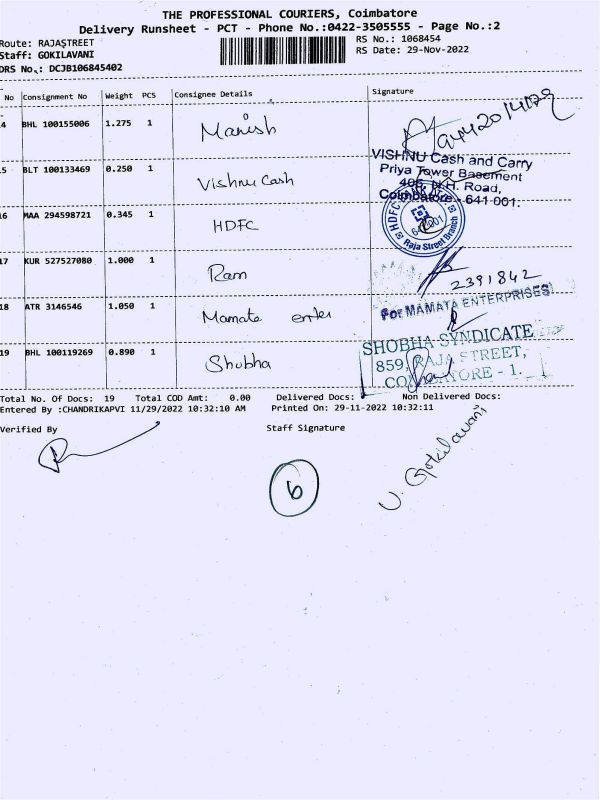 THE PROFESSIONAL COURIERS, Coimbatore
Delivery Runsheet - PCT - Phone No.:0422-3505555 - Page No.:2
Route: RAJASTREET
RS No.: 1068454
Staff: GOKILAVANI
RS Date: 29-Nov-2022
DRS No.: DCJB106845402
No Consignment No Weight PCS Consignee Details Signature
4 BHL 100155006 1.275 1 Manish
5 BLT 100133469 0.250 1 Vishnu Cash
VISHNU Cash and Carry
Priya Tower Basement
405, N.H. Road,
Coimbatore - 641 001.
16 MAA 294598721 0.345 1 HDFC
HDFC
Raja Street Branch
17 KUR 527527080 1.000 1 Ram
2391842
18 ATR 3146546 1.050 1 Mamata enter
For MAMATA ENTERPRISES
19 BHL 100119269 0.890 1 Shobha
SHOBHA SYNDICATE
859, RAJA STREET,
COIMBATORE - 1.
Total No. Of Docs: 19 Total COD Amt: 0.00 Delivered Docs: Non Delivered Docs:
Entered By :CHANDRIKAPVI 11/29/2022 10:32:10 AM Printed On: 29-11-2022 10:32:11
Verified By Staff Signature
U. Gokilavani
6